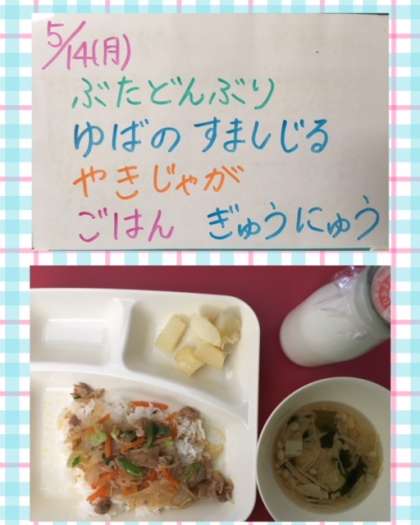 5/14(月)
ぶたどんぶり
ゆばの すましじる
やきじゃが
ごはん ぎゅうにゅう